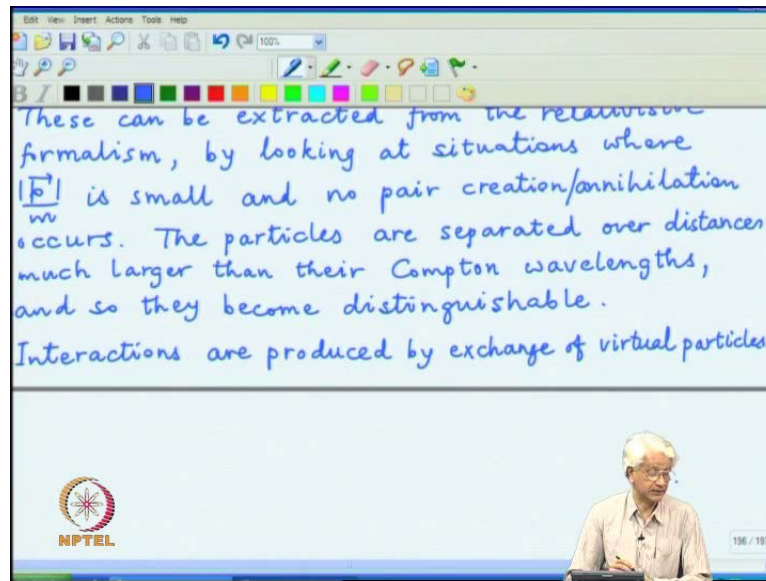 Edit View Insert Actions Tools Help
100%
B I
These can be extracted from the relativistic
formalism, by looking at situations where
|p⃗|/m is small and no pair creation/annihilation
occurs. The particles are separated over distances
much larger than their Compton wavelengths,
and so they become distinguishable.
Interactions are produced by exchange of virtual particles
NPTEL